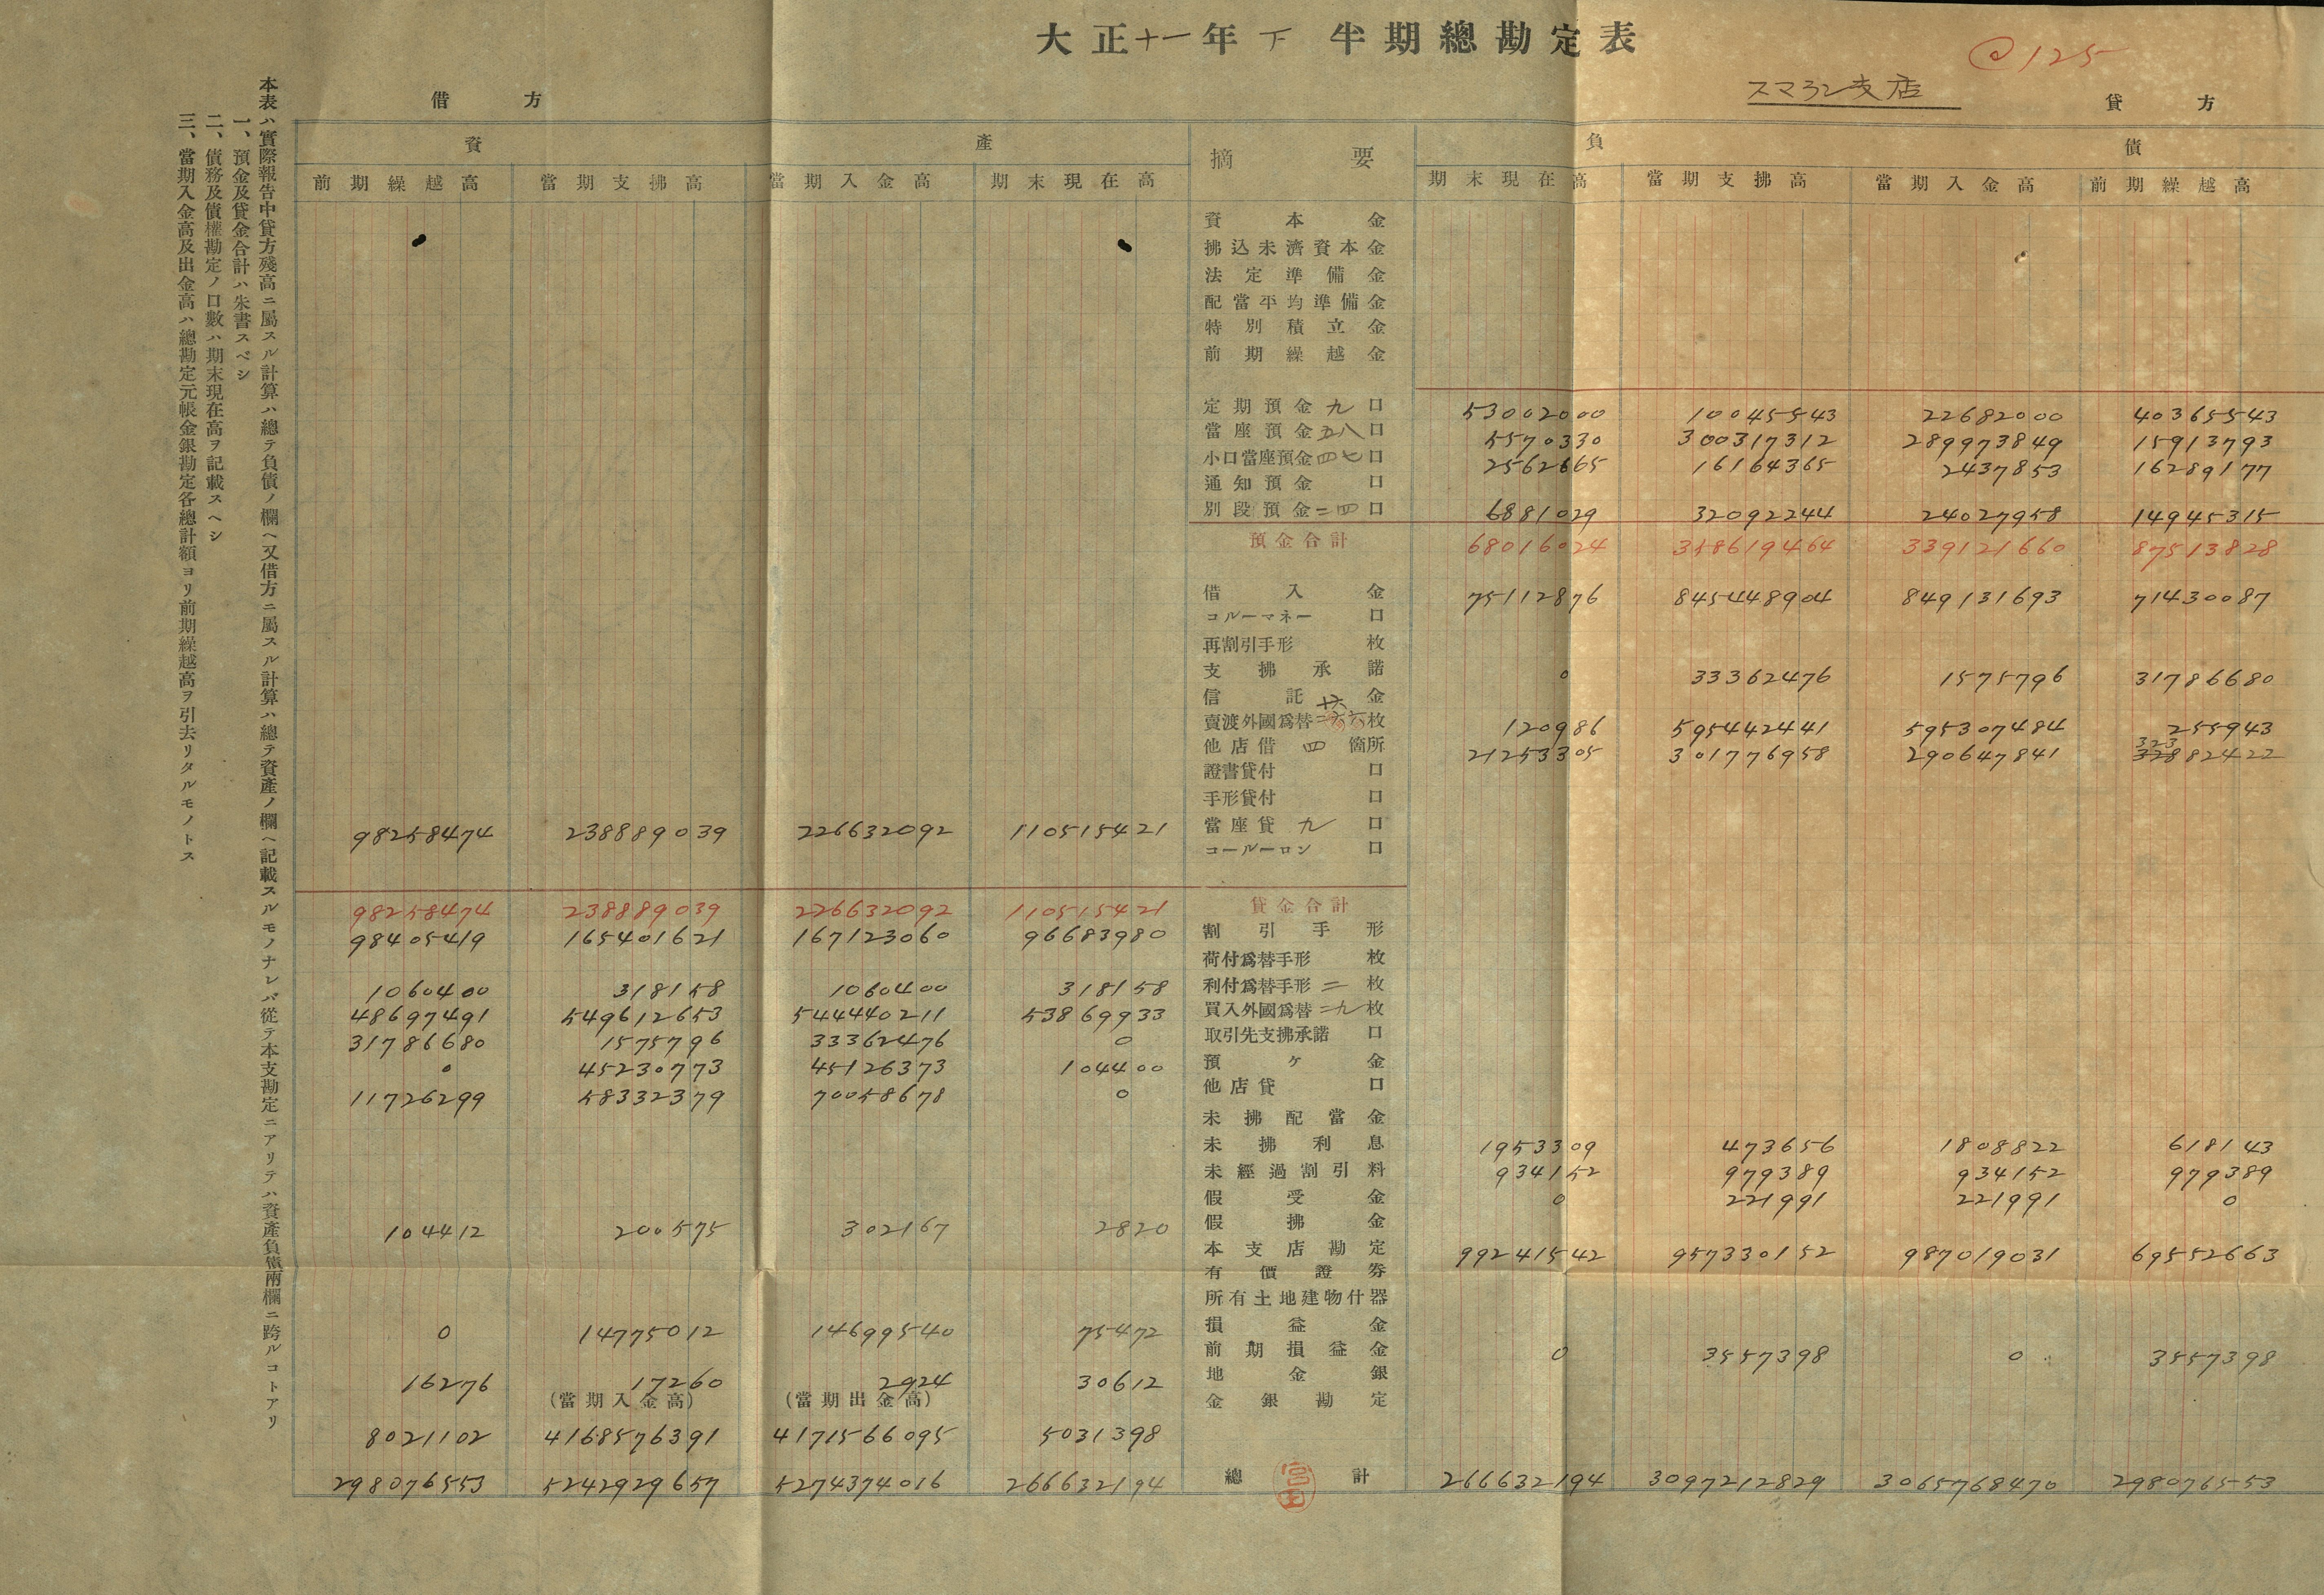 大正十一年下半期總勘定表
@125
スマラン支店
借方
貸方
資產
摘要
負債
前期繰越高 當期支拂高 當期入金高 期末現在高 期末現在高 當期支拂高 當期入金高 前期繰越高
資本金
拂込未濟資本金
法定準備金
配當平均準備金
特別積立金
前期繰越金
定期預金九口 53002000 10045543 22682000 40365543
當座預金五八口 5570330 300317312 289973849 15913793
小口當座預金四七口 2562665 16164365 2437853 16289177
通知預金口
別段預金二四口 6881029 32092244 24027958 14945315
預金合計 68016024 358619464 339121660 87513828
借入金 75112876 845448904 849131693 71430087
コルーマネー口
再割引手形枚
支拂承諾 0 33362476 1575796 31786680
信託金
賣渡外國爲替枚 120986 595442441 595307484 255943
他店借四箇所 21253305 301776958 290647841 32382422
證書貸付口
手形貸付口
98258474 238889039 226632092 110515421 當座貸九口
コールーロン口
98258474 238889039 226632092 110515421 貸金合計
98405419 165401621 167123060 96683980 割引手形
荷付爲替手形枚
1060400 318158 1060400 318158 利付爲替手形二枚
48697491 549612653 544440211 53869933 買入外國爲替二九枚
31786680 1575796 33362476 0 取引先支拂承諾口
0 45230773 45126373 104400 預ケ金
11726299 58332379 70058678 0 他店貸口
未拂配當金
未拂利息 1953309 473656 1808822 618143
未經過割引料 934152 979389 934152 979389
假受金 0 221991 221991 0
104412 200575 302167 2820 假拂金
本支店勘定 99241542 957330152 987019031 69552663
有價證券
所有土地建物什器
0 14775012 14699540 75472 損益金
前期損益金 0 3557398 0 3557398
16276 17260 2924 30612 地金銀
(當期入金高) (當期出金高) 金銀勘定
8021102 4168576391 4171566095 5031398
298076553 5242929657 5274374016 266632194 總計 266632194 3097212829 3065768470 298076553
宮
本表ハ實際報告中貸方殘高ニ屬スル計算ハ總テ負債ノ欄ヘ又借方ニ屬スル計算ハ總テ資產ノ欄ヘ記載スルモノナレバ從テ本支勘定ニアリテハ資產負債兩欄ニ跨ルコトアリ
一、預金及貸金合計ハ朱書スベシ
二、債務及債權勘定ノ口數ハ期末現在高ヲ記載スヘシ
三、當期入金高及出金高ハ總勘定元帳金銀勘定各總計額ヨリ前期繰越高ヲ引去リタルモノトス